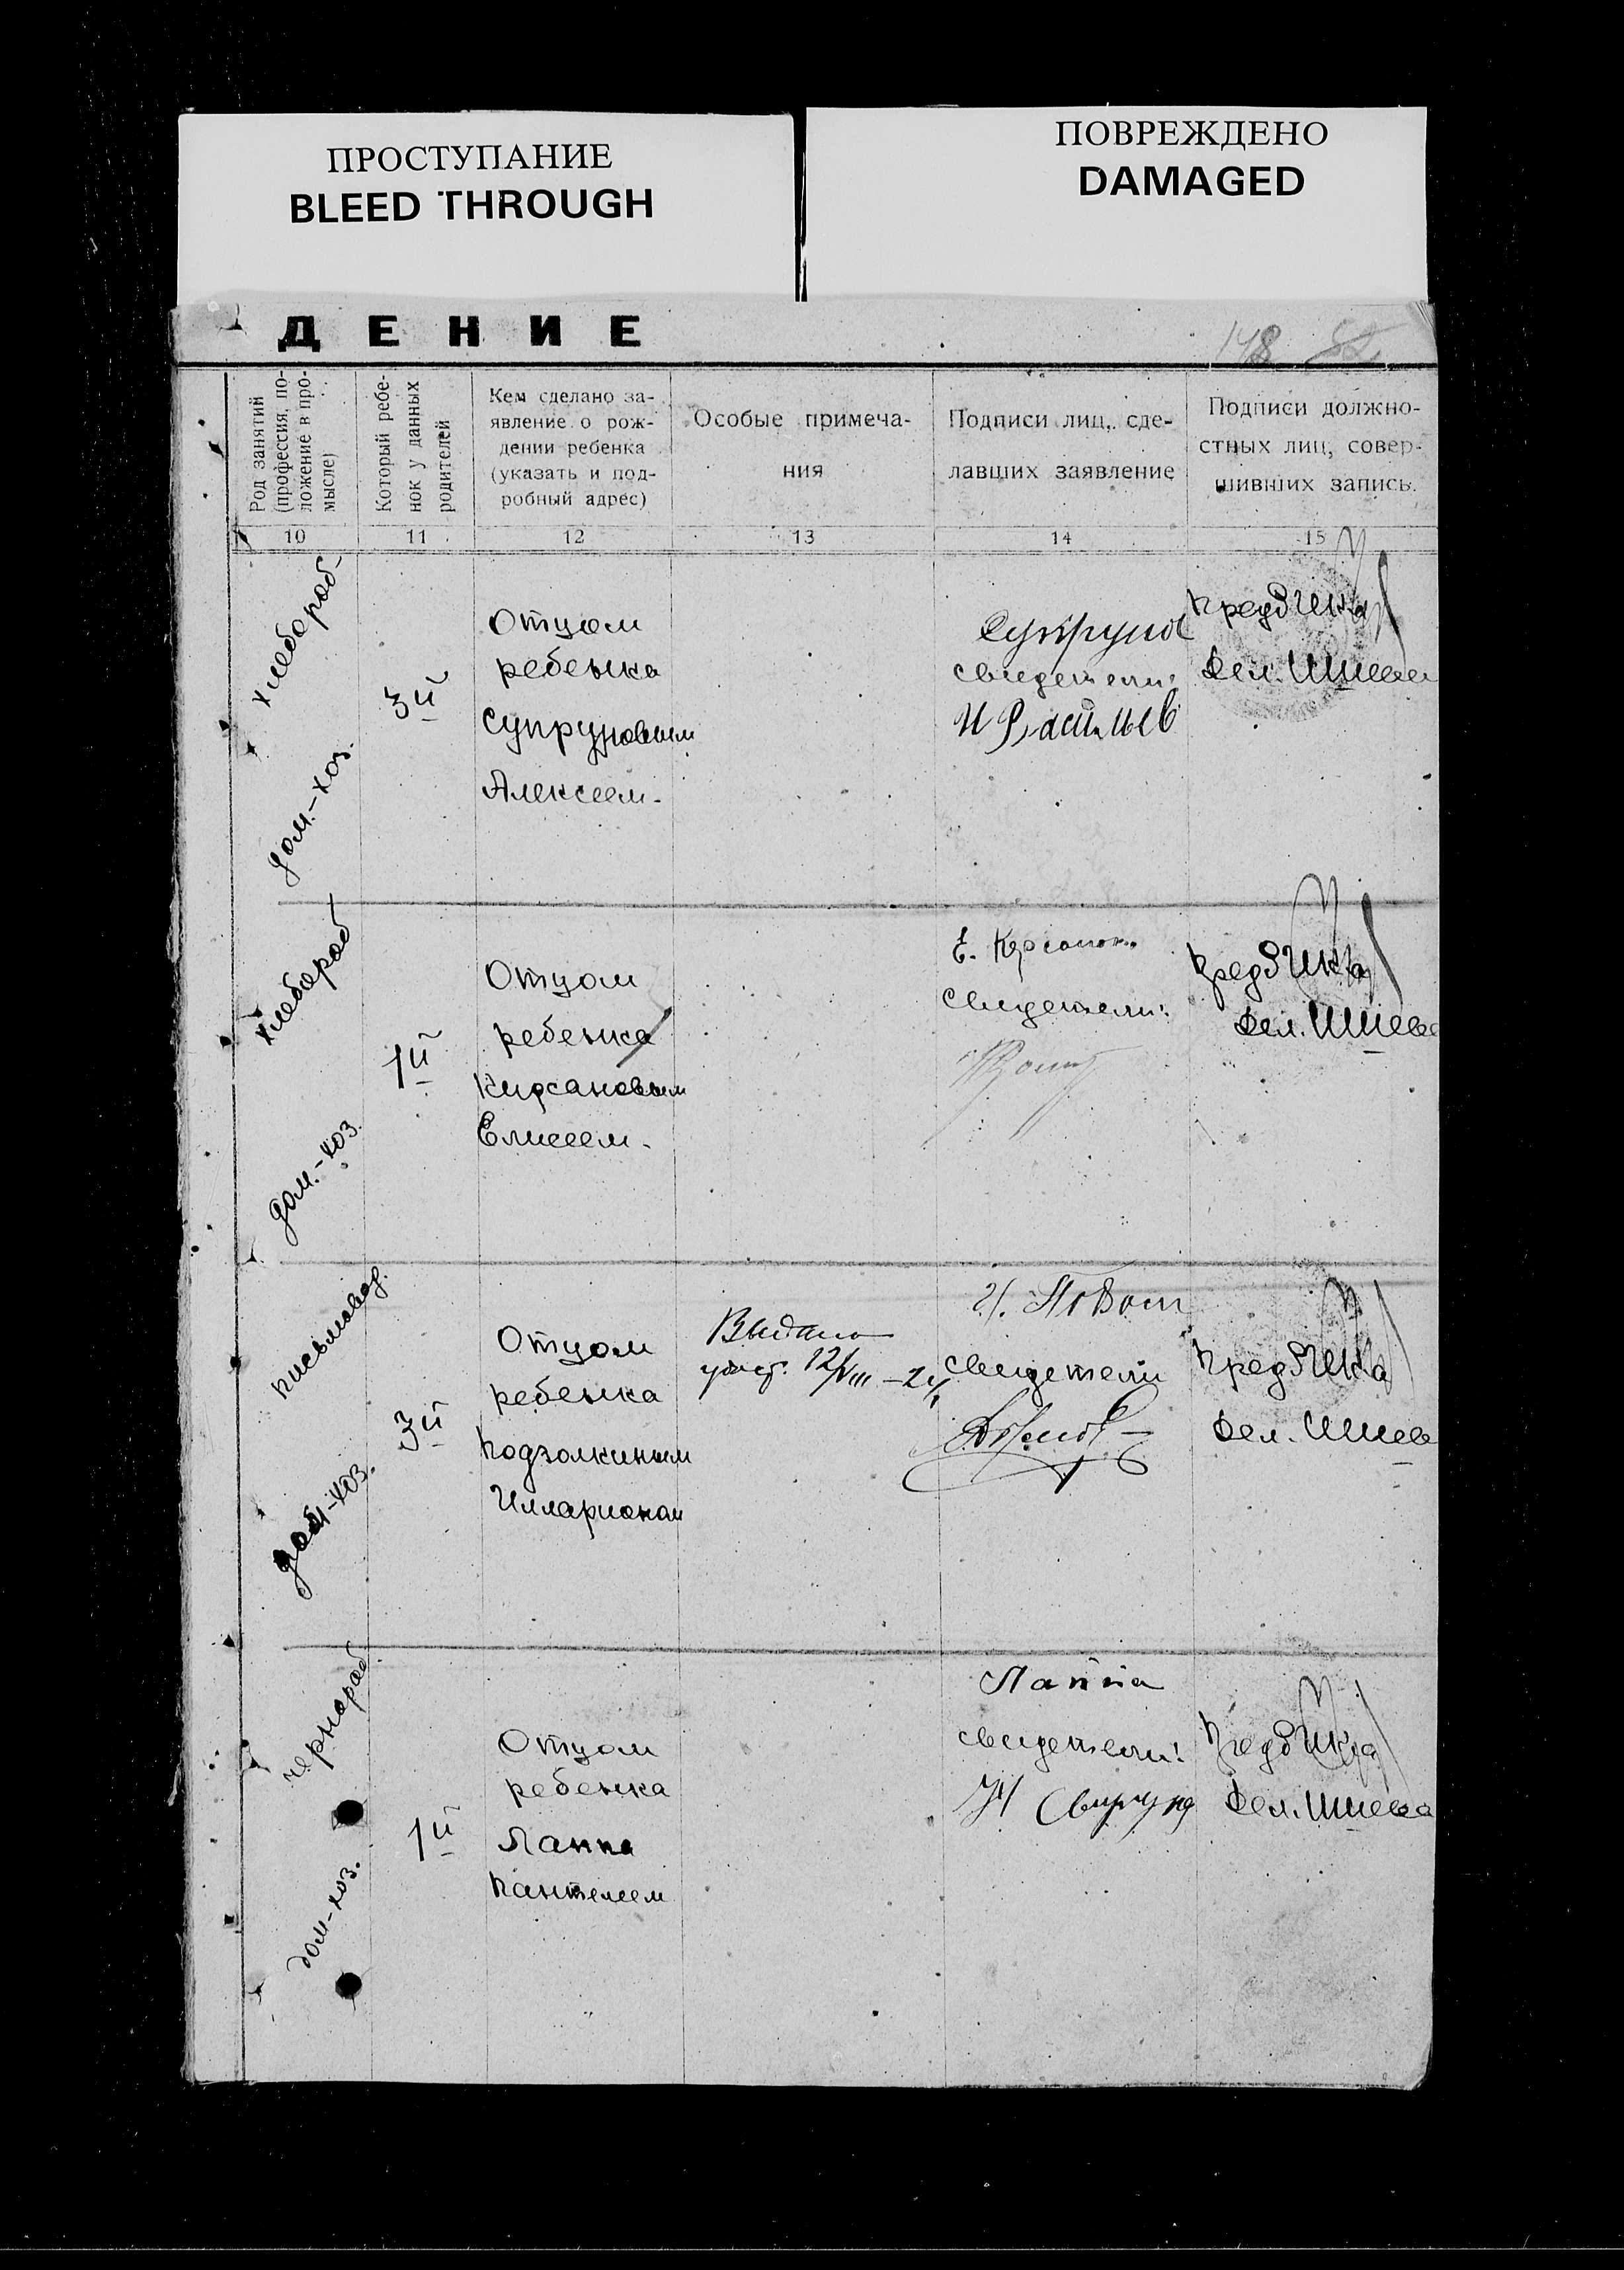 ПРОСТУПАНИЕ
BLEED THROUGH
ПОВРЕЖДЕНО
DAMAGED
ДЕНИЕ
148
Род занятий
(профессия, по-
ложение в про-
мысле)
Который ребе-
нок у данных
родителей
Кем сделано за-
явление о рож-
дении ребенка
(указать и под-
робный адрес)
Особые примеча-
ния
Подписи лиц, сде-
лавших заявление
Подписи должно-
стных лиц, совер-
шивших запись.
10
11
12
13
14
15
хлебороб
дом.-хоз.
3й
Отцом
ребенка
Супруновым
Алексеем.
Супрунов
свидетели:
Дел.
хлебороб
дом.-хоз.
1й
Отцом
ребенка
Кирсановым
Елисеем.
Е.
свидетели:
Дел.
письмовод.
дом-хоз.
3й
Отцом
ребенка
Подзолкиным
Илларионом
Выдано
12/VIII-24
свидетели
Дел.
чернораб.
дом-хоз.
1й
Отцом
ребенка
Лаппа
Пантелеем
Лаппа
свидетели:
Дел.